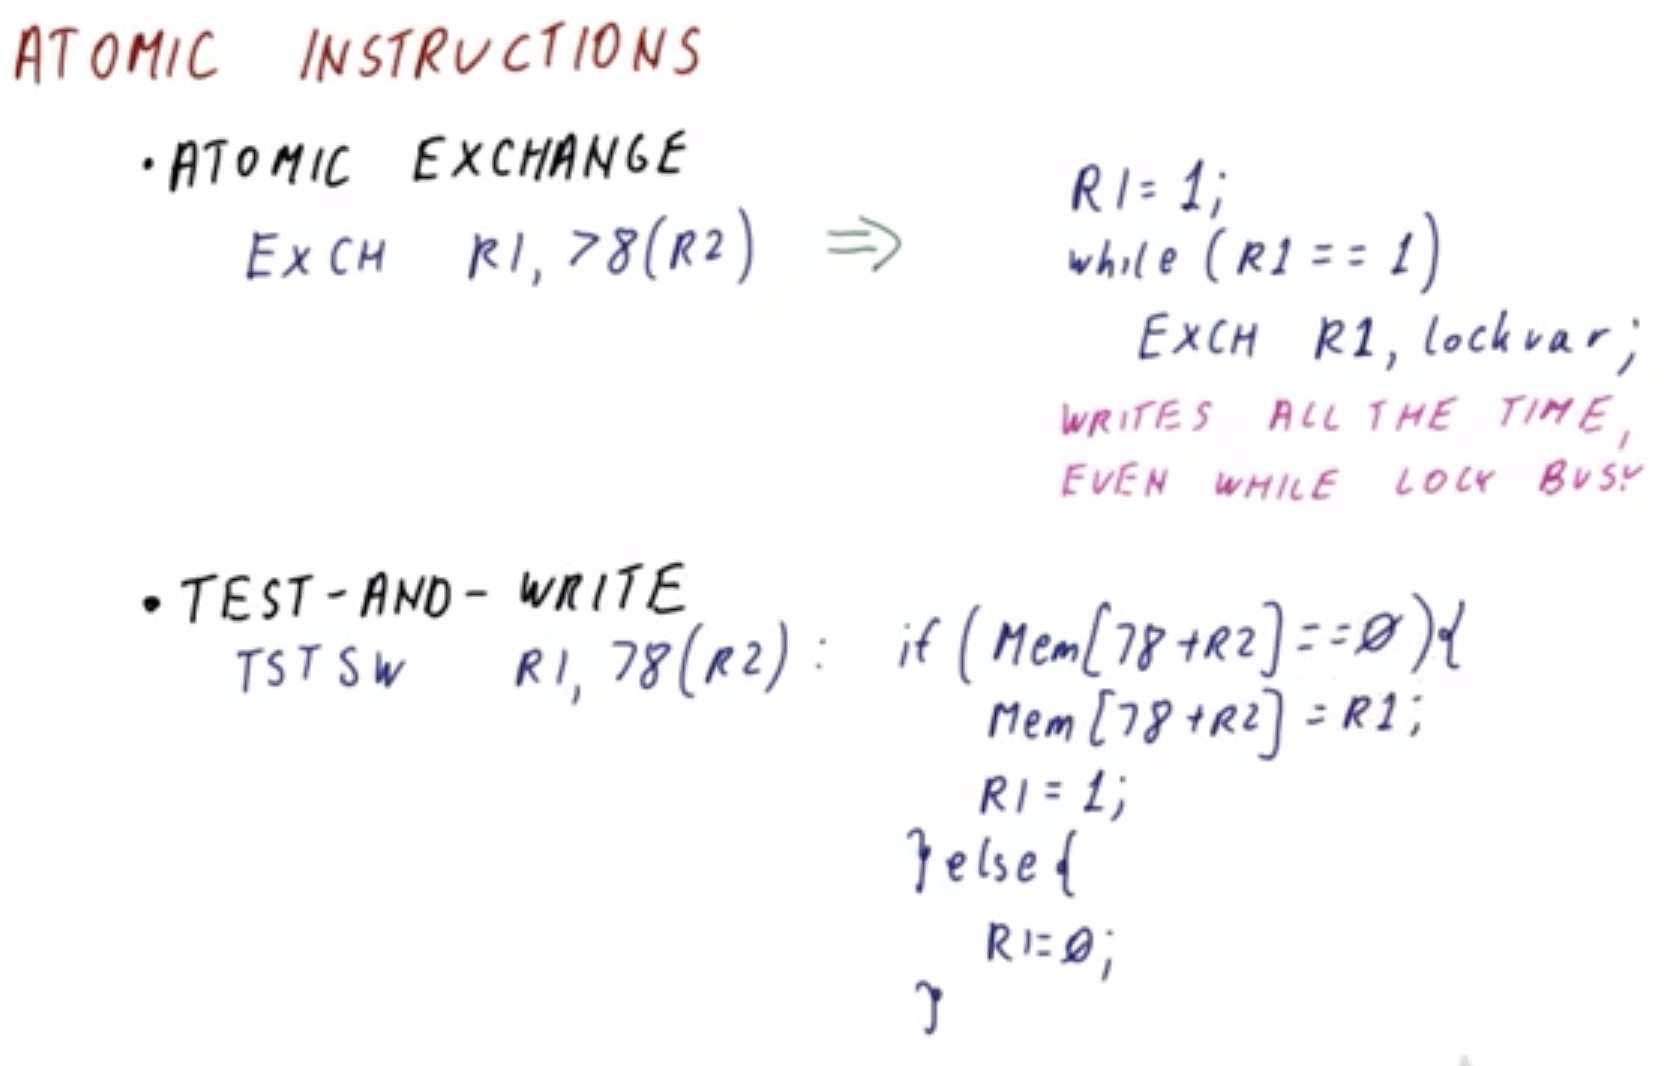 ATOMIC INSTRUCTIONS
• ATOMIC EXCHANGE
EXCH R1, 78(R2) ⇒
R1 = 1;
while (R1 == 1)
EXCH R1, lockvar;
WRITES ALL THE TIME,
EVEN WHILE LOCK BUSY
• TEST-AND-WRITE
TSTSW R1, 78(R2) : if (Mem[78+R2]==0){
Mem[78+R2] = R1;
R1 = 1;
}else{
R1=0;
}